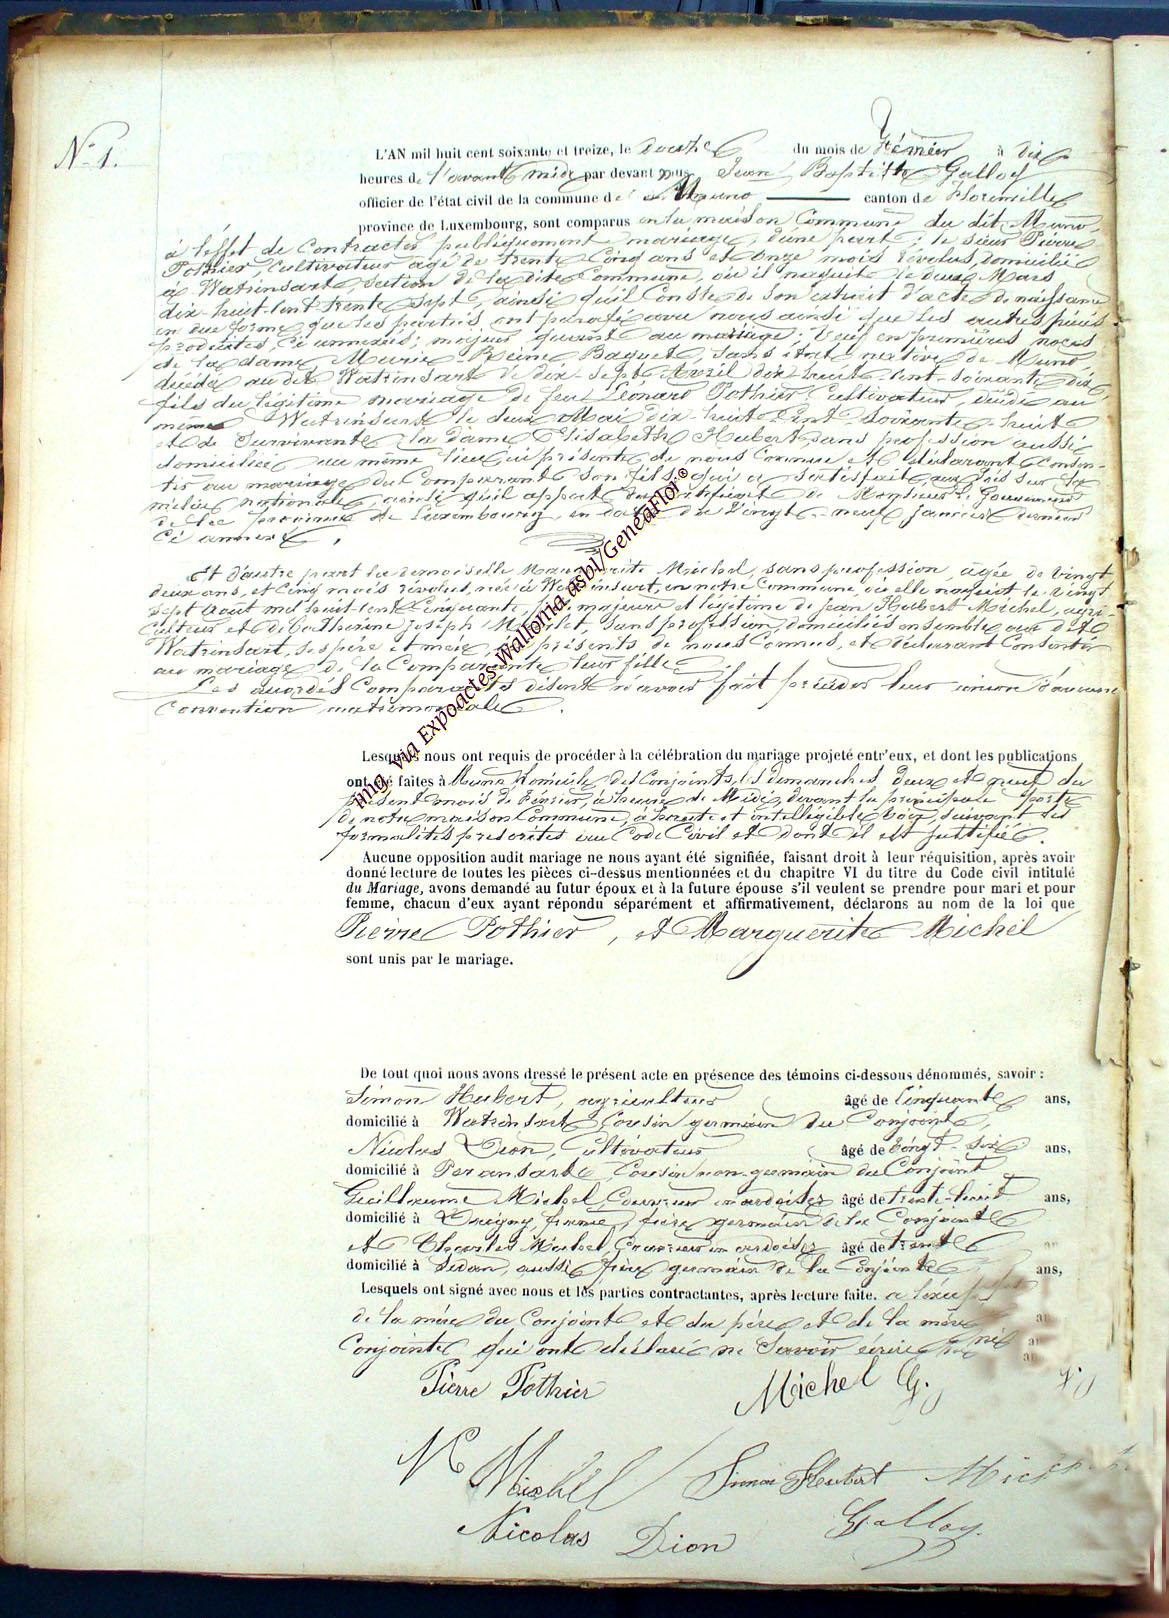 N° 1.
L'AN mil huit cent soixante et treize, le douze du mois de Février à dix
heures de l'avant midi par devant nous Jean Baptiste Galloy
officier de l'état civil de la commune de Muno canton de Florenville
province de Luxembourg, sont comparus en la maison Commune du dit Muno,
à l'effet de contracter publiquement mariage, d'une part; le sieur Pierre
Pothier, cultivateur agé de trente cinq ans et onze mois révolus, domicilié
à Watrinsart, section de la dite Commune, où il naquit le deux Mars
dix-huit-cent trente sept, ainsi qu'il Conste de son extrait d'acte de naissance
en due forme, que les parties ont parafé avec nous ainsi que les autres pièces
produites, ci annexées; majeur quant au mariage; Veuf en premières noces
de la dame Marie Reine Baquet, sans état, native de Muno,
décédée au dit Watrinsart le dix-sept Avril dix huit-cent-soixante dix,
fils du légitime mariage de feu Léonard Pothier Cultivateur, décédé au
même Watrinsart le deux Mai dix-huit-Cent-soixante-huit
et de Survivante la dame Elisabeth Hubert, sans profession aussi
domiciliée au même lieu, ici présente de nous Connue et déclarant consen-
tir au mariage du Comparant son fils, qui a satisfait aux lois sur la
milice nationale, ainsi qu'il appert du certificat de Monsieur le Gouverneur
de la province de Luxembourg en date du Vingt-neuf janvier dernier
ci annexé,
Et d'autre part la demoiselle Marguerite Michel, sans profession, agée de vingt
deux ans, et Cinq mois révolus, née à Watrinsart, en notre Commune, où elle naquit le vingt
sept Août mil huit-cent Cinquante, fille majeure et légitime de jean Hubert Michel, agri-
culteur et de Catherine Joseph sans profession, domiciliés ensemble au dit
Watrinsart, ses père et mère, ici présents de nous Connus, et déclarant Consentir
au mariage de la Comparante leur fille.
Les Comparants disent n'avoir fait précéder leur union d'aucune
Convention matrimoniale.
Lesquels nous ont requis de procéder à la célébration du mariage projeté entr'eux, et dont les publications
ont été faites à Muno domicile des Conjoints, les dimanches deux et neuf du
présent mois de Février, à heure de Midi, devant la principale porte
de notre maison Commune, à haute et intelligible Voix, suivant les
formalités prescrites au Code Civil et dont il est justifié.
Aucune opposition audit mariage ne nous ayant été signifiée, faisant droit à leur réquisition, après avoir
donné lecture de toutes les pièces ci-dessus mentionnées et du chapitre VI du titre du Code civil intitulé
du Mariage, avons demandé au futur époux et à la future épouse s'il veulent se prendre pour mari et pour
femme, chacun d'eux ayant répondu séparément et affirmativement, déclarons au nom de la loi que
Pierre Pothier, et Marguerite Michel
sont unis par le mariage.
De tout quoi nous avons dressé le présent acte en présence des témoins ci-dessous dénommés, savoir :
Simon Hubert, agriculteur âgé de Cinquante ans,
domicilié à Watrinsart, Cousin germain du Conjoint,
Nicolas Dion, Cultivateur âgé de Vingt-six ans,
domicilié à Cousin non-germain du Conjoint
Guillaume Michel, Couvreur en ardoises âgé de trente-huit ans,
domicilié à frère germain de la Conjointe
et Charles Michel, Couvreur en ardoises âgé de trente
domicilié à Sedan, aussi frère germain de la Conjointe ans,
Lesquels ont signé avec nous et les parties contractantes, après lecture faite. a
de la mère du Conjoint et du père et de la mère
Conjointe qui ont déclaré ne Savoir écrire
Pierre Pothier Michel G.
M Michel Simon Hubert Michel
Nicolas Dion Galloy
img. via Expoactes-Wallonia asbl/GeneaFlor®